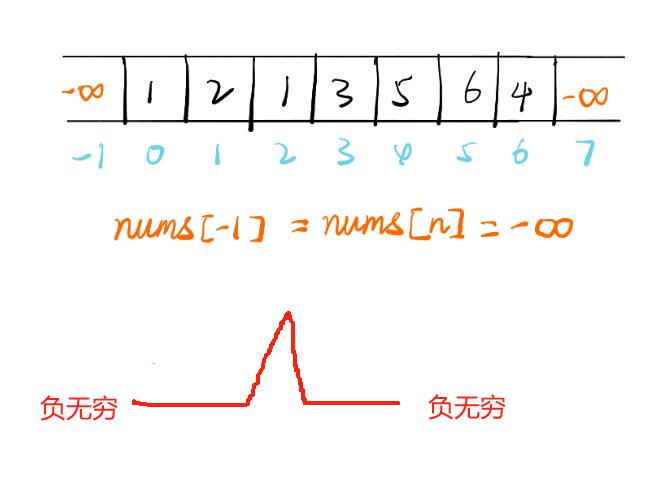 -∞ 1 2 1 3 5 6 4 -∞
-1 0 1 2 3 4 5 6 7
nums[-1] = nums[n] = -∞
负无穷 负无穷